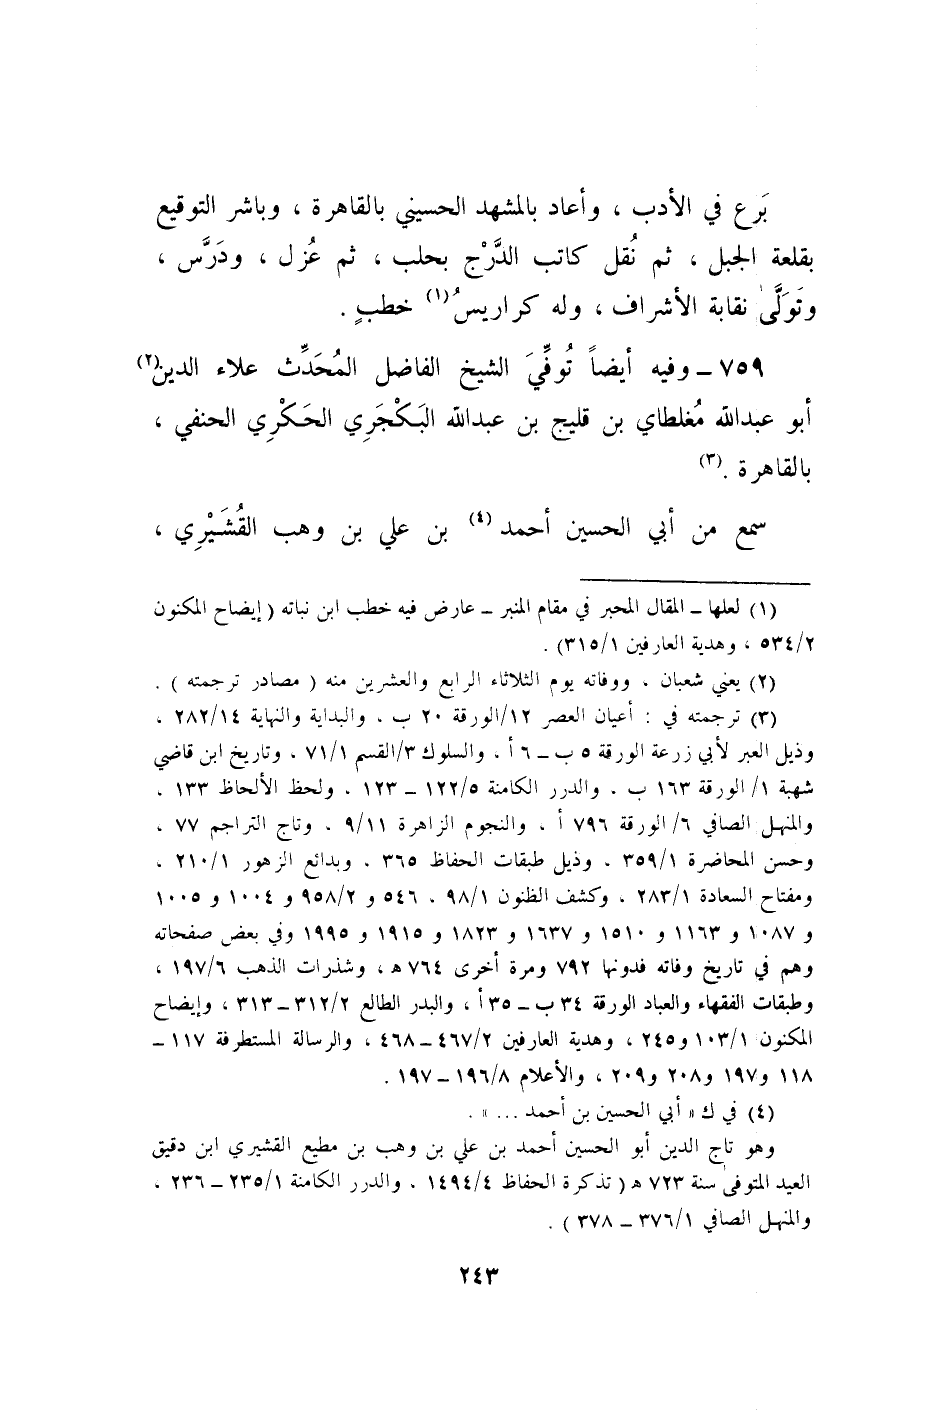 بَرع في الأدب ، وأعاد بالمشهد الحسيني بالقاهرة ، وباشر التوقيع
بقلعة الجبل ، ثم نُقل كاتب الدَّرْج بحلب ، ثم عُزل ، ودَرَّس ،
وتَوَلَّىٰ نقابة الأشراف ، وله كراريسُ(١) خطبٍ .
٧٥٩ ــ وفيه أيضاً تُوفِّيَ الشيخ الفاضل المُحَدِّث علاء الدين(٢)
أبو عبدالله مُغلطاي بن قليج بن عبدالله البَكْجَرِي الحَكْرِي الحنفي ،
بالقاهرة .(٣)
سمع من أبي الحسين أحمد (٤) بن علي بن وهب القُشَيْرِي ،
(١) لعلها ــ المقال المحبر في مقام المنبر ــ عارض فيه خطب ابن نباته ( إيضاح المكنون
٥٣٤/٢ ، وهدية العارفين ٣١٥/١) .
(٢) يعني شعبان . ووفاته يوم الثلاثاء الرابع والعشرين منه ( مصادر ترجمته ) .
(٣) ترجمته في : أعيان العصر ١٢/الورقة ٢٠ ب . والبداية والنهاية ٢٨٢/١٤ ،
وذيل العبر لأبي زرعة الورقة ٥ ب ــ ٦ أ . والسلوك ٣/القسم ٧١/١ . وتاريخ ابن قاضي
شهبة ١/ الورقة ١٦٣ ب . والدرر الكامنة ١٢٢/٥ ــ ١٢٣ . ولحظ الألحاظ ١٣٣ .
والمنهل الصافي ٦/ الورقة ٧٩٦ أ . والنجوم الزاهرة ٩/١١ . وتاج التراجم ٧٧ ،
وحسن المحاضرة ٣٥٩/١ . وذيل طبقات الحفاظ ٣٦٥ . وبدائع الزهور ٢١٠/١ .
ومفتاح السعادة ٢٨٣/١ . وكشف الظنون ٩٨/١ . ٥٤٦ و ٩٥٨/٢ و ١٠٠٤ و ١٠٠٥
و ١٠٨٧ و ١١٦٣ و ١٥١٠ و ١٦٣٧ و ١٨٢٣ و ١٩١٥ و ١٩٩٥ وفي بعض صفحاته
وهم في تاريخ وفاته فدونها ٧٩٢ ومرة أخرى ٧٦٤ هـ ، وشذرات الذهب ١٩٧/٦ ،
وطبقات الفقهاء والعباد الورقة ٣٤ ب ــ ٣٥ أ ، والبدر الطالع ٣١٢/٢ ــ ٣١٣ ، وإيضاح
المكنون ١٠٣/١ و٢٤٥ ، وهدية العارفين ٤٦٧/٢ ــ ٤٦٨ ، والرسالة المستطرفة ١١٧ ــ
١١٨ و١٩٧ و٢٠٨ و٢٠٩ ، والأعلام ١٩٦/٨ ــ ١٩٧ .
(٤) في ك « أبي الحسين بن أحمد ... » .
وهو تاج الدين أبو الحسين أحمد بن علي بن وهب بن مطيع القشيري ابن دقيق
العيد المتوفىٰ سنة ٧٢٣ هـ ( تذكرة الحفاظ ١٤٩٤/٤ . والدرر الكامنة ٢٣٥/١ ــ ٢٣٦ .
والمنهل الصافي ٣٧٦/١ ــ ٣٧٨ ) .
٢٤٣